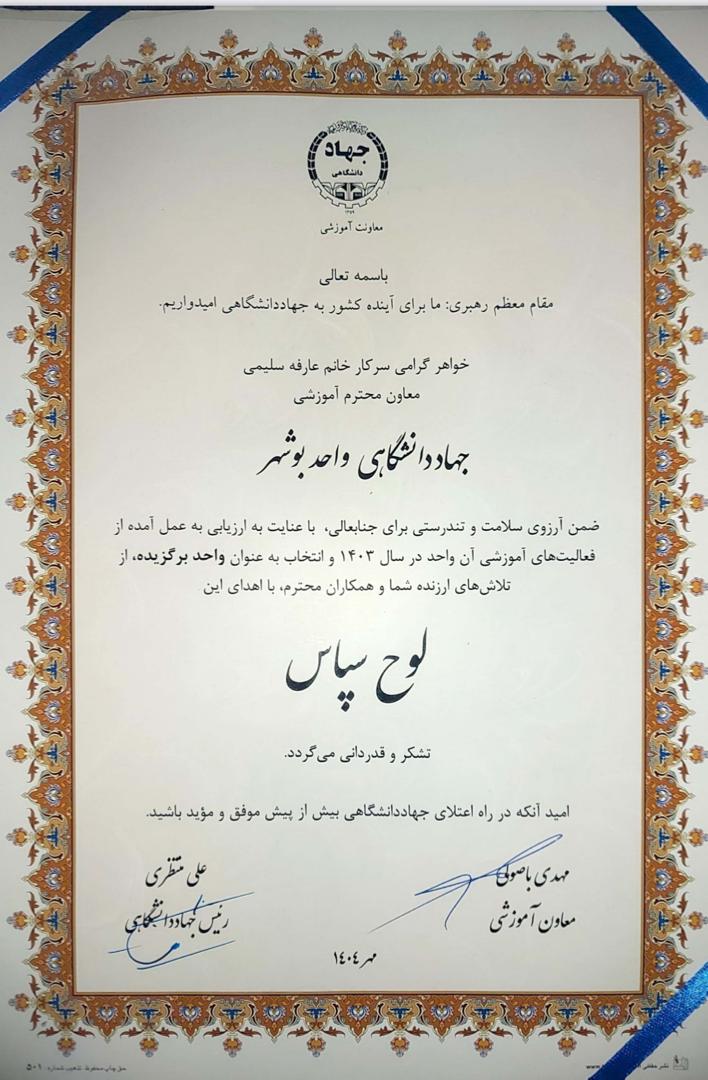 جهاد
دانشگاهی
۱۳۵۹
معاونت آموزشی
باسمه تعالی
مقام معظم رهبری: ما برای آینده کشور به جهاددانشگاهی امیدواریم.
خواهر گرامی سرکار خانم عارفه سلیمی
معاون محترم آموزشی
جهاددانشگاهی واحد بوشهر
ضمن آرزوی سلامت و تندرستی برای جنابعالی، با عنایت به ارزیابی به عمل آمده از
فعالیت‌های آموزشی آن واحد در سال ۱۴۰۳ و انتخاب به عنوان واحد برگزیده، از
تلاش‌های ارزنده شما و همکاران محترم، با اهدای این
لوح سپاس
تشکر و قدردانی می‌گردد.
امید آنکه در راه اعتلای جهاددانشگاهی بیش از پیش موفق و مؤید باشید.
مهدی باصولی
معاون آموزشی
علی منتظری
رئیس جهاددانشگاهی
مهر ۱۴۰۴
حق چاپ محفوظ - تذهیب شماره: ۵۰۱